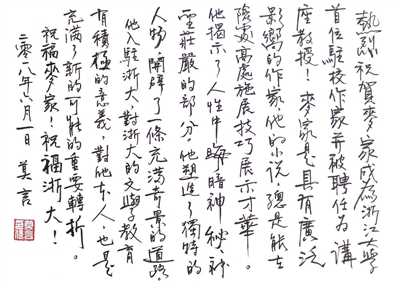 熱烈祝賀麥家成為浙江大學
首位駐校作家并被聘任為講
座教授!麥家是具有廣泛
影響的作家他的小說,總是能在
險處高處施展技巧展示才華。
他揭示了人性中晦暗神秘,神
聖莊嚴的部分。他塑造了獨特的
人物,開辟了一條充滿奇景的道路。
他入駐浙大,對浙大的文學教育
有積極的意義,對他本人,也是
充滿了新的可能的重要轉折。
祝福麥家!祝福浙大!
二零一八年八月一日 莫言